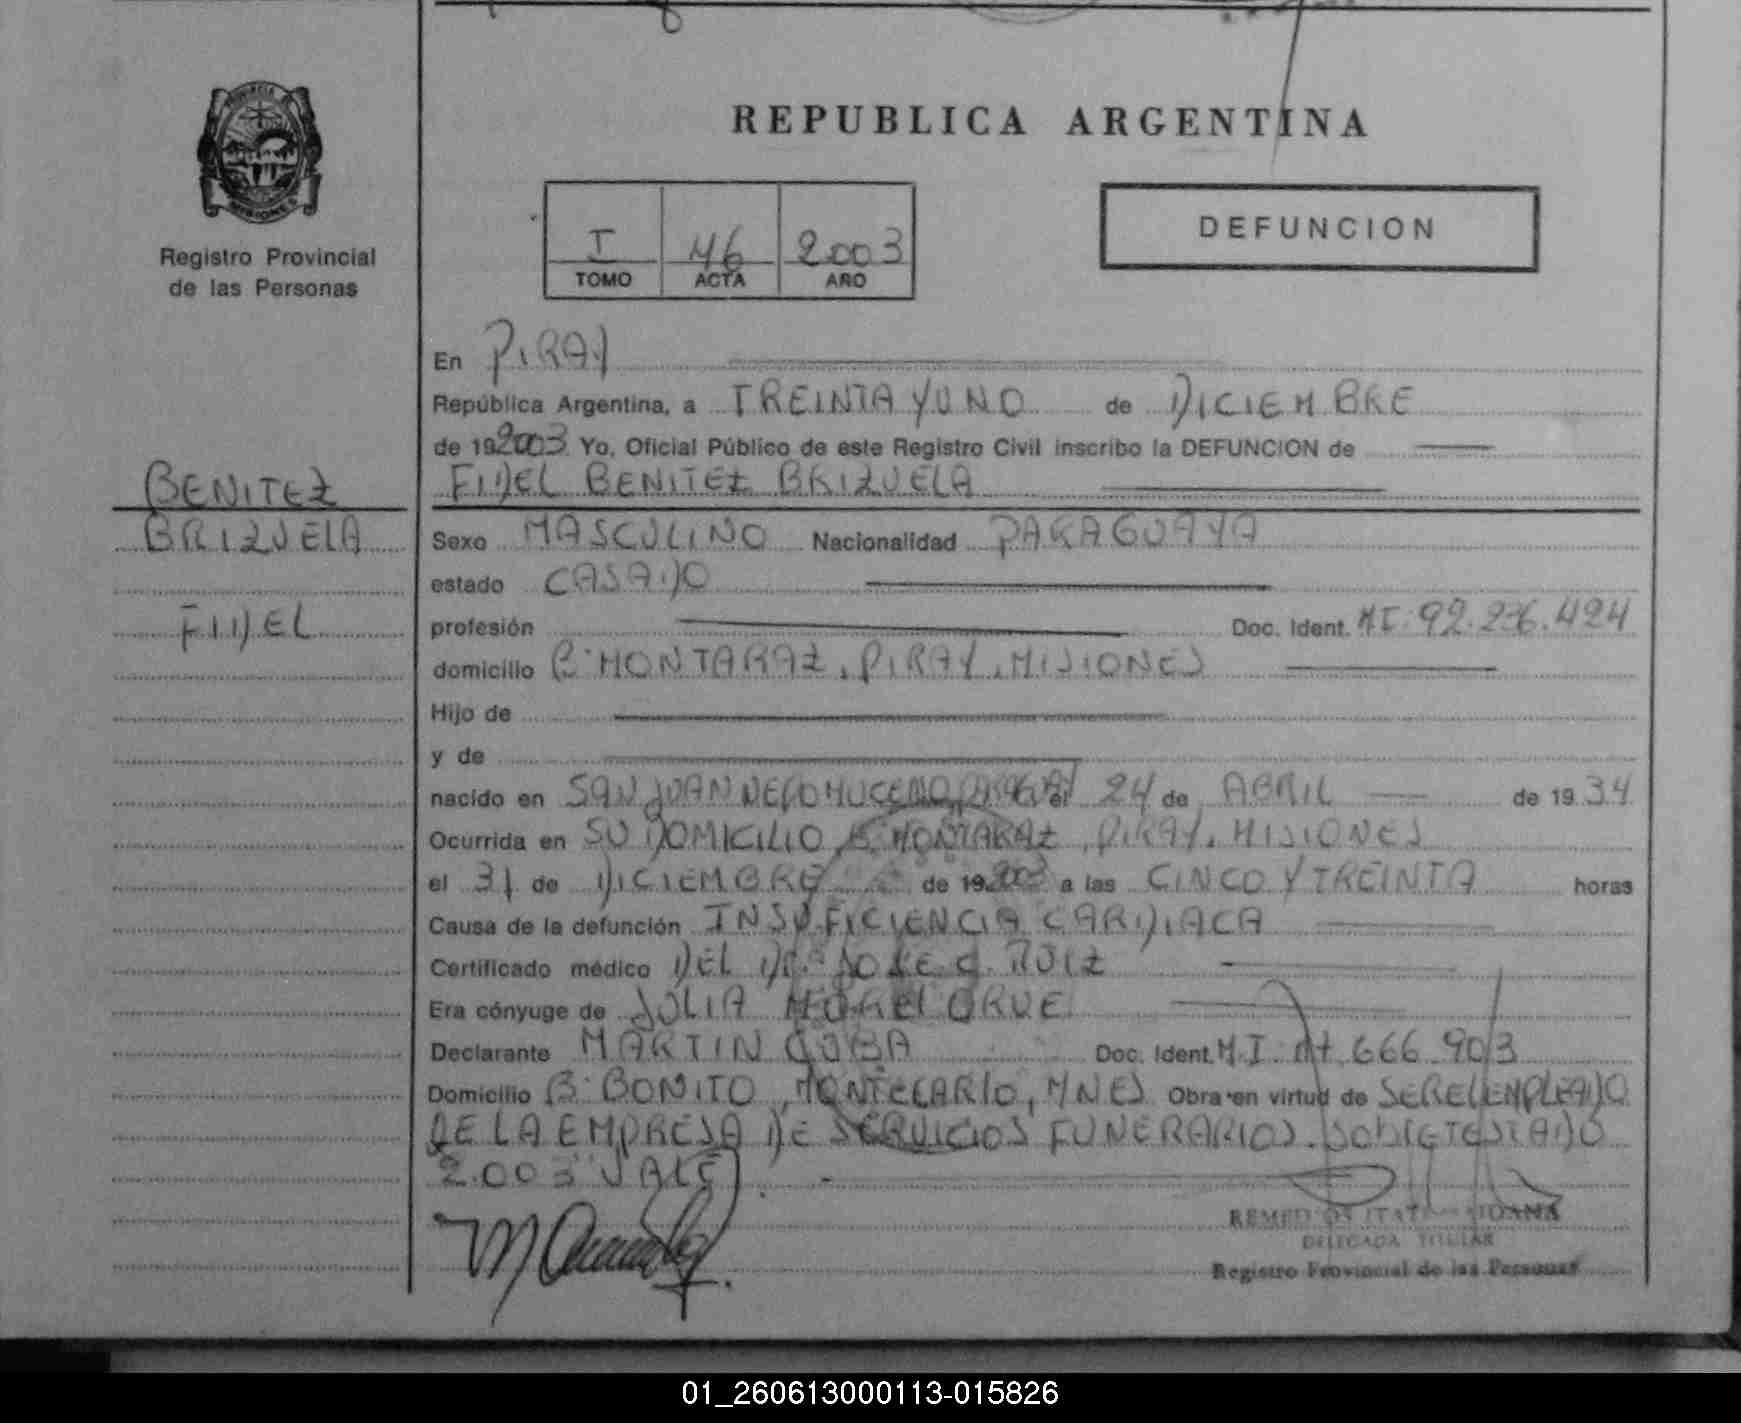 PROVINCIA DE
MISIONES
Registro Provincial
de las Personas
BENITEZ
BRIZUELA
FIDEL
REPUBLICA ARGENTINA
I 46 2.003
TOMO ACTA AÑO
DEFUNCION
En PIRAY
República Argentina, a TREINTA Y UNO de DICIEMBRE
de 192003 Yo, Oficial Público de este Registro Civil inscribo la DEFUNCION de
FIDEL BENITEZ BRIZUELA
Sexo MASCULINO Nacionalidad PARAGUAYA
estado CASADO
profesión Doc. Ident. MI: 92.236.424
domicilio B: MONTARAZ, PIRAY, MISIONES
Hijo de
y de
nacido en SAN JUAN NEPOMUCENO, PARAGUAY el 24 de ABRIL de 1934
Ocurrida en SU DOMICILIO, B: MONTARAZ, PIRAY, MISIONES
el 31 de DICIEMBRE de 192003 a las CINCO Y TREINTA horas
Causa de la defunción INSUFICIENCIA CARDIACA
Certificado médico DEL DR. JOSE C. RUIZ
Era cónyuge de JULIA MOREL ORUE
Declarante MARTIN Doc. Ident. M.I. 666.903
Domicilio B: BONITO, MONTECARLO, MNES Obra en virtud de SER EL EMPLEADO
DE LA EMPRESA DE SERVICIOS FUNERARIOS. SOBRETESTADO
2.003 VALE
DELEGADA TITULAR
Registro Provincial de las Personas
01_260613000113-015826